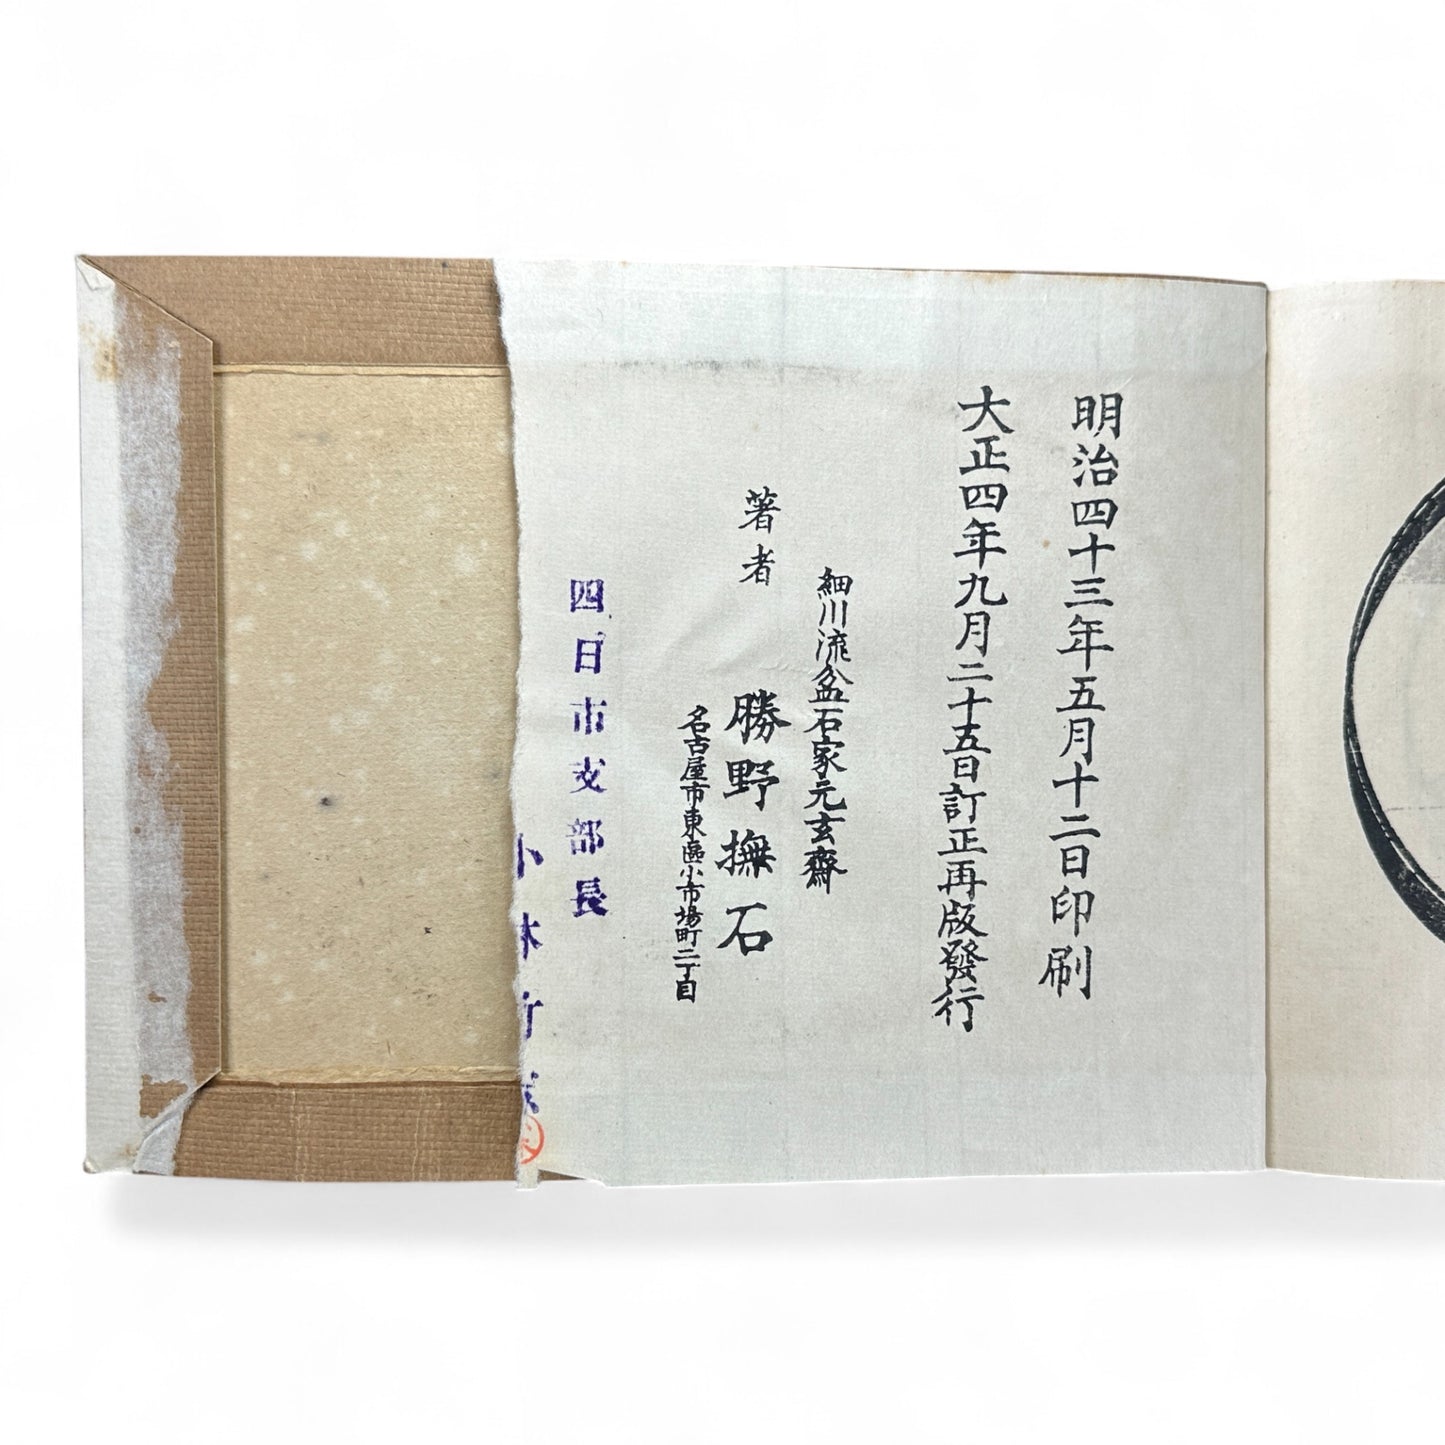 明治四十三年五月十二日印刷
大正四年九月二十五日訂正再版發行
細川流盆石家元玄齋
著者 勝野撫石
名古屋市東區小市場町二丁目
四日市支部長
小林